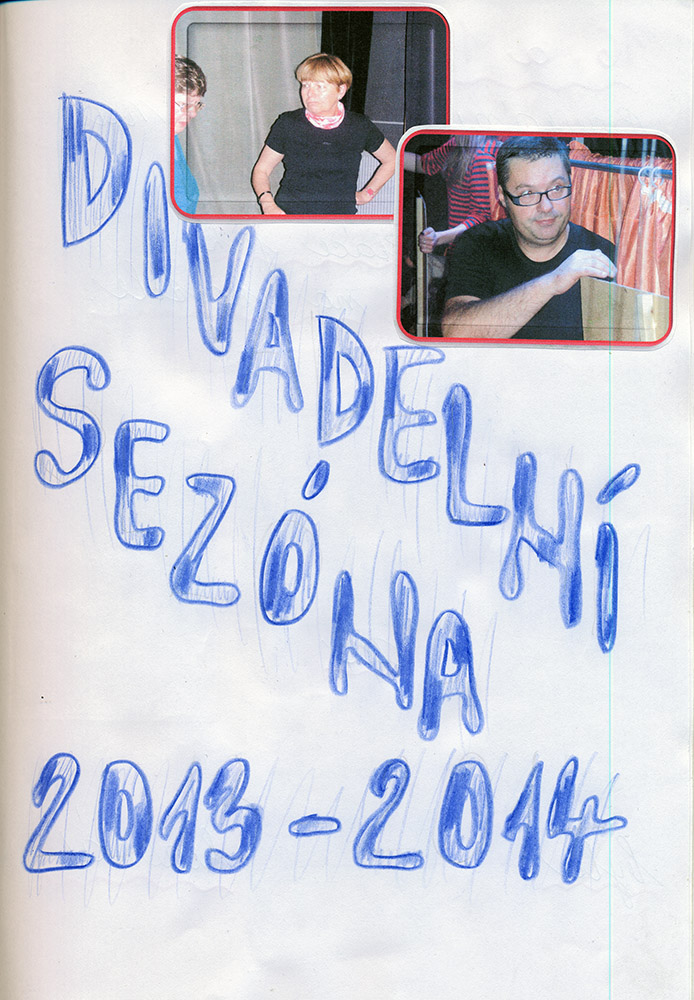 DIVADELNÍ
SEZÓNA
2013-2014